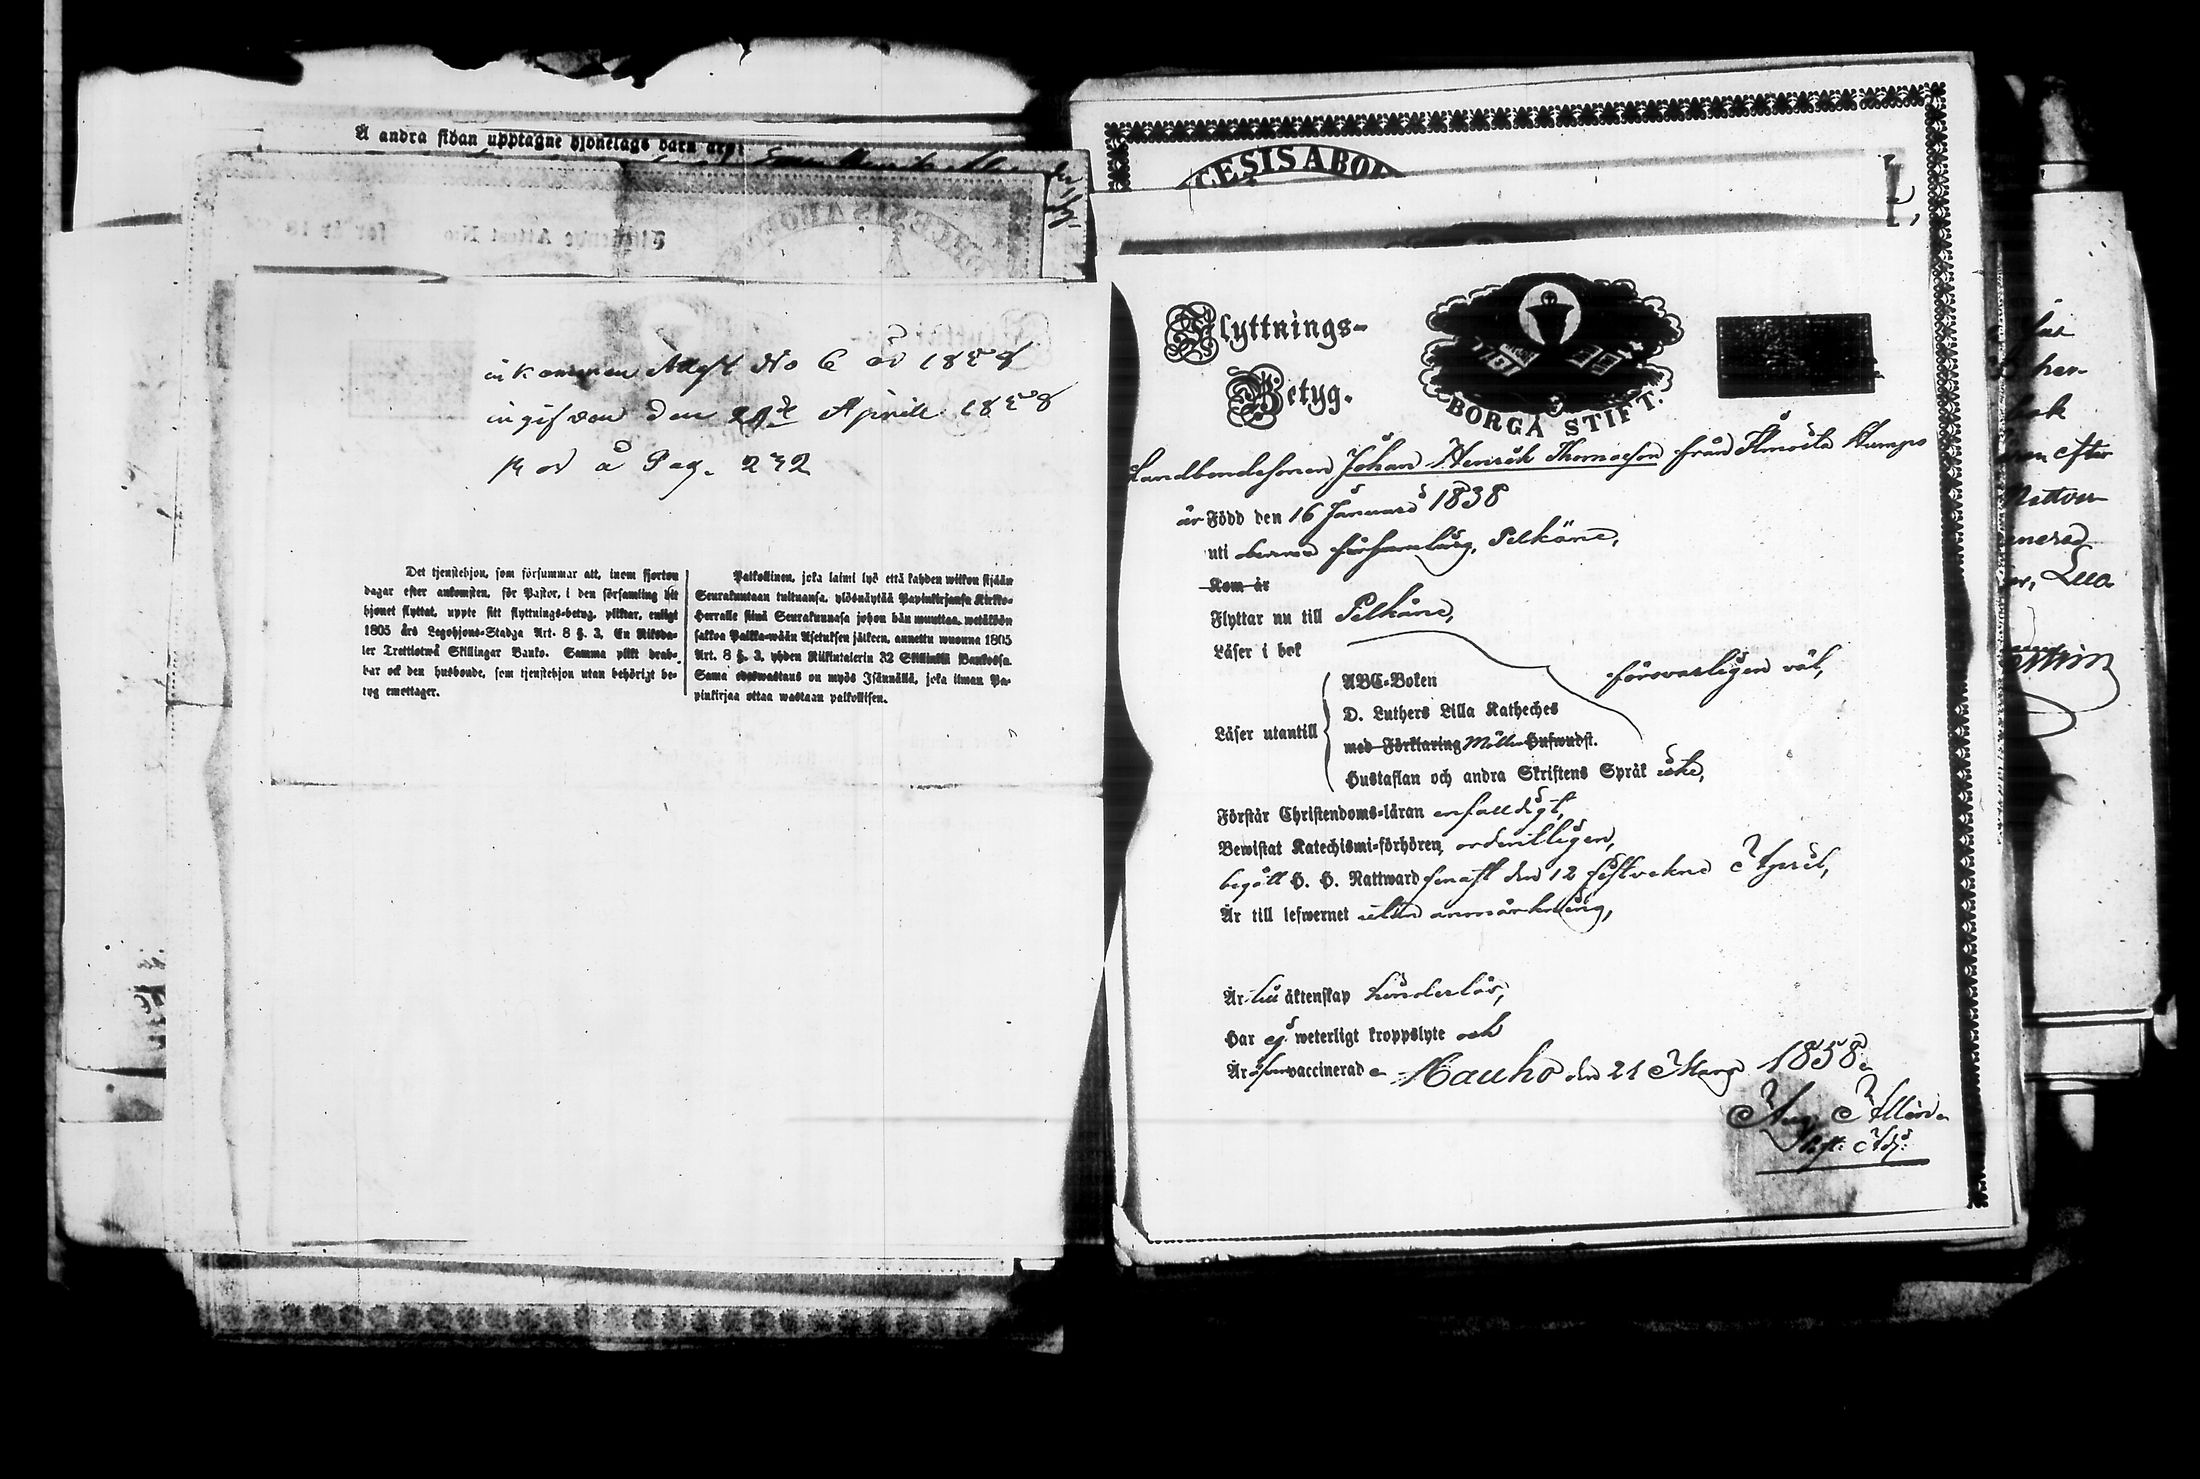 Å andra sidan upptagne hjonelags barn äro
inkommen Attest No 6 år 1858
ingifven den 29de Aprill 1858
å Pag. 232
Det tjenstehjon, som försummar att, inom fjorton
dagar efter ankomsten, för Pastor, i den församling dit
hjonet flyttat, uppte sitt flyttnings-betyg, pliktar, enligt
1805 års Legohjons-Stadga Art. 8 §. 3. En Riksda-
ler Trettiotwå Skillingar Banko. Samma plikt drab-
bar ock den husbonde, som tjenstehjon utan behörigt be-
tyg emottager.
Palkollinen, joka laimi lyö että kahden wiikon sisään
Seurakuntaan tultuansa, ylösnäytää Papinkirjansa Kirkko-
Herralle siinä Seurakunnasa johon hän muuttaa, wetäköön
sakkoa Palkka-wään Asetuksen jälkeen, annettu wuonna 1805
Art. 8 §. 3, yhden Riikintalerin 32 Skillinkiä Bankossa.
Sama edeswastaus on myös Isännällä, joka ilman Pa-
pinkirjaa ottaa wastaan palkollisen.
CESIS ABOE
Flyttnings-
Betyg.
BORGÅ STIFT.
Landbondesonen Johan Henrik Thomasson från
är Född den 16 Januari 1838
uti denna församling, Pelkäne,
Kom är
Flyttar nu till Pelkäne,
Läser i bok
försvarligen väl,
Läser utantill
ABC-Boken
D. Luthers Lilla Katheches
med Förklaring Hufwudst.
Hustaflan och andra Skriftens Språk icke,
Förstår Christendoms-läran enfalldigt,
Bewistat Katechismi-förhören, ordentligen,
begått H. H. Nattward senast den 12 sistvekne April,
Är till lefwernet utan anmärkning,
Är till äktenskap hinderlös,
Har ej weterligt kroppslyte och
Är vaccinerad Hauho den 21 Mars 1858.
Aug.
Adj.